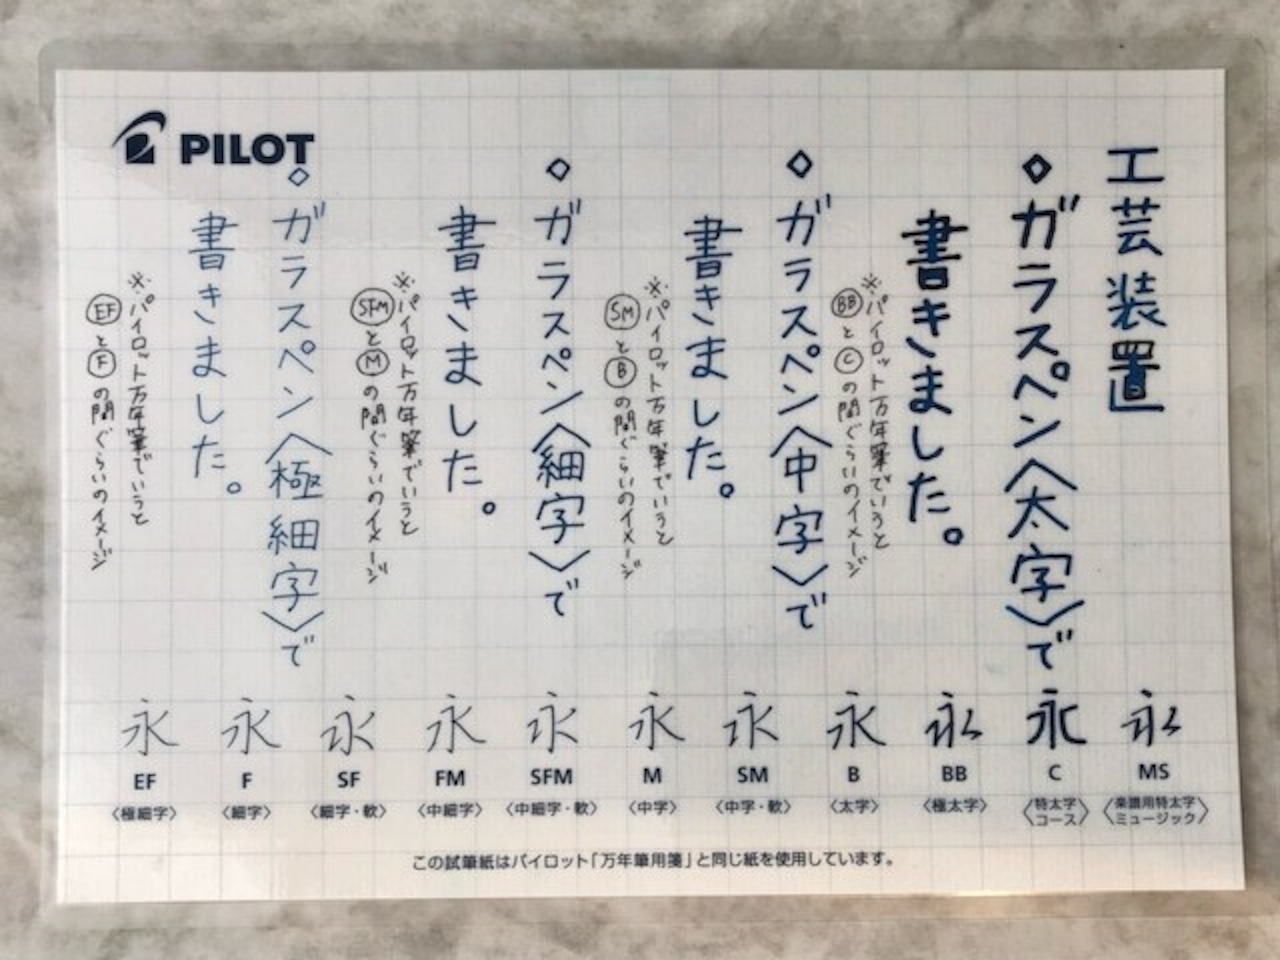 PILOT
工芸装置
◇ガラスペン〈太字〉で
書きました。
※パイロット万年筆でいうと
BBとCの間ぐらいのイメージ
◇ガラスペン〈中字〉で
書きました。
※パイロット万年筆でいうと
SMとBの間ぐらいのイメージ
◇ガラスペン〈細字〉で
書きました。
※パイロット万年筆でいうと
SFMとMの間ぐらいのイメージ
◇ガラスペン〈極細字〉で
書きました。
※パイロット万年筆でいうと
EFとFの間ぐらいのイメージ
永 永 永 永 永 永 永 永 永 永 永
EF F SF FM SFM M SM B BB C MS
〈極細字〉 〈細字〉 〈細字・軟〉 〈中細字〉 〈中細字・軟〉 〈中字〉 〈中字・軟〉 〈太字〉 〈極太字〉 〈特太字 コース〉 〈楽譜用特太字 ミュージック〉
この試筆紙はパイロット「万年筆用箋」と同じ紙を使用しています。